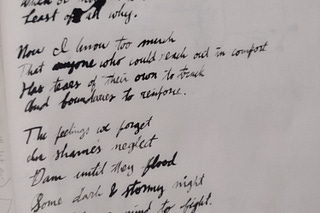 Least of all why.
Now I know too much
That anyone who could reach out in comfort
Has tears of their own to
And boundaries to reinforce.
The feelings we forget
shame's neglect
Dam until they flood
Some dark & stormy night
to fight.